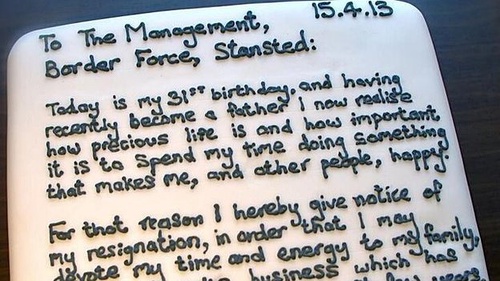 15.4.13
To The Management,
Border Force, Stansted:
Today is my 31st birthday, and having
recently become a father I now realise
how precious life is and how important
it is to spend my time doing something
that makes me, and other people, happy.
For that reason I hereby give notice of
my resignation, in order that I may
devote my time and energy to my family,
business which has